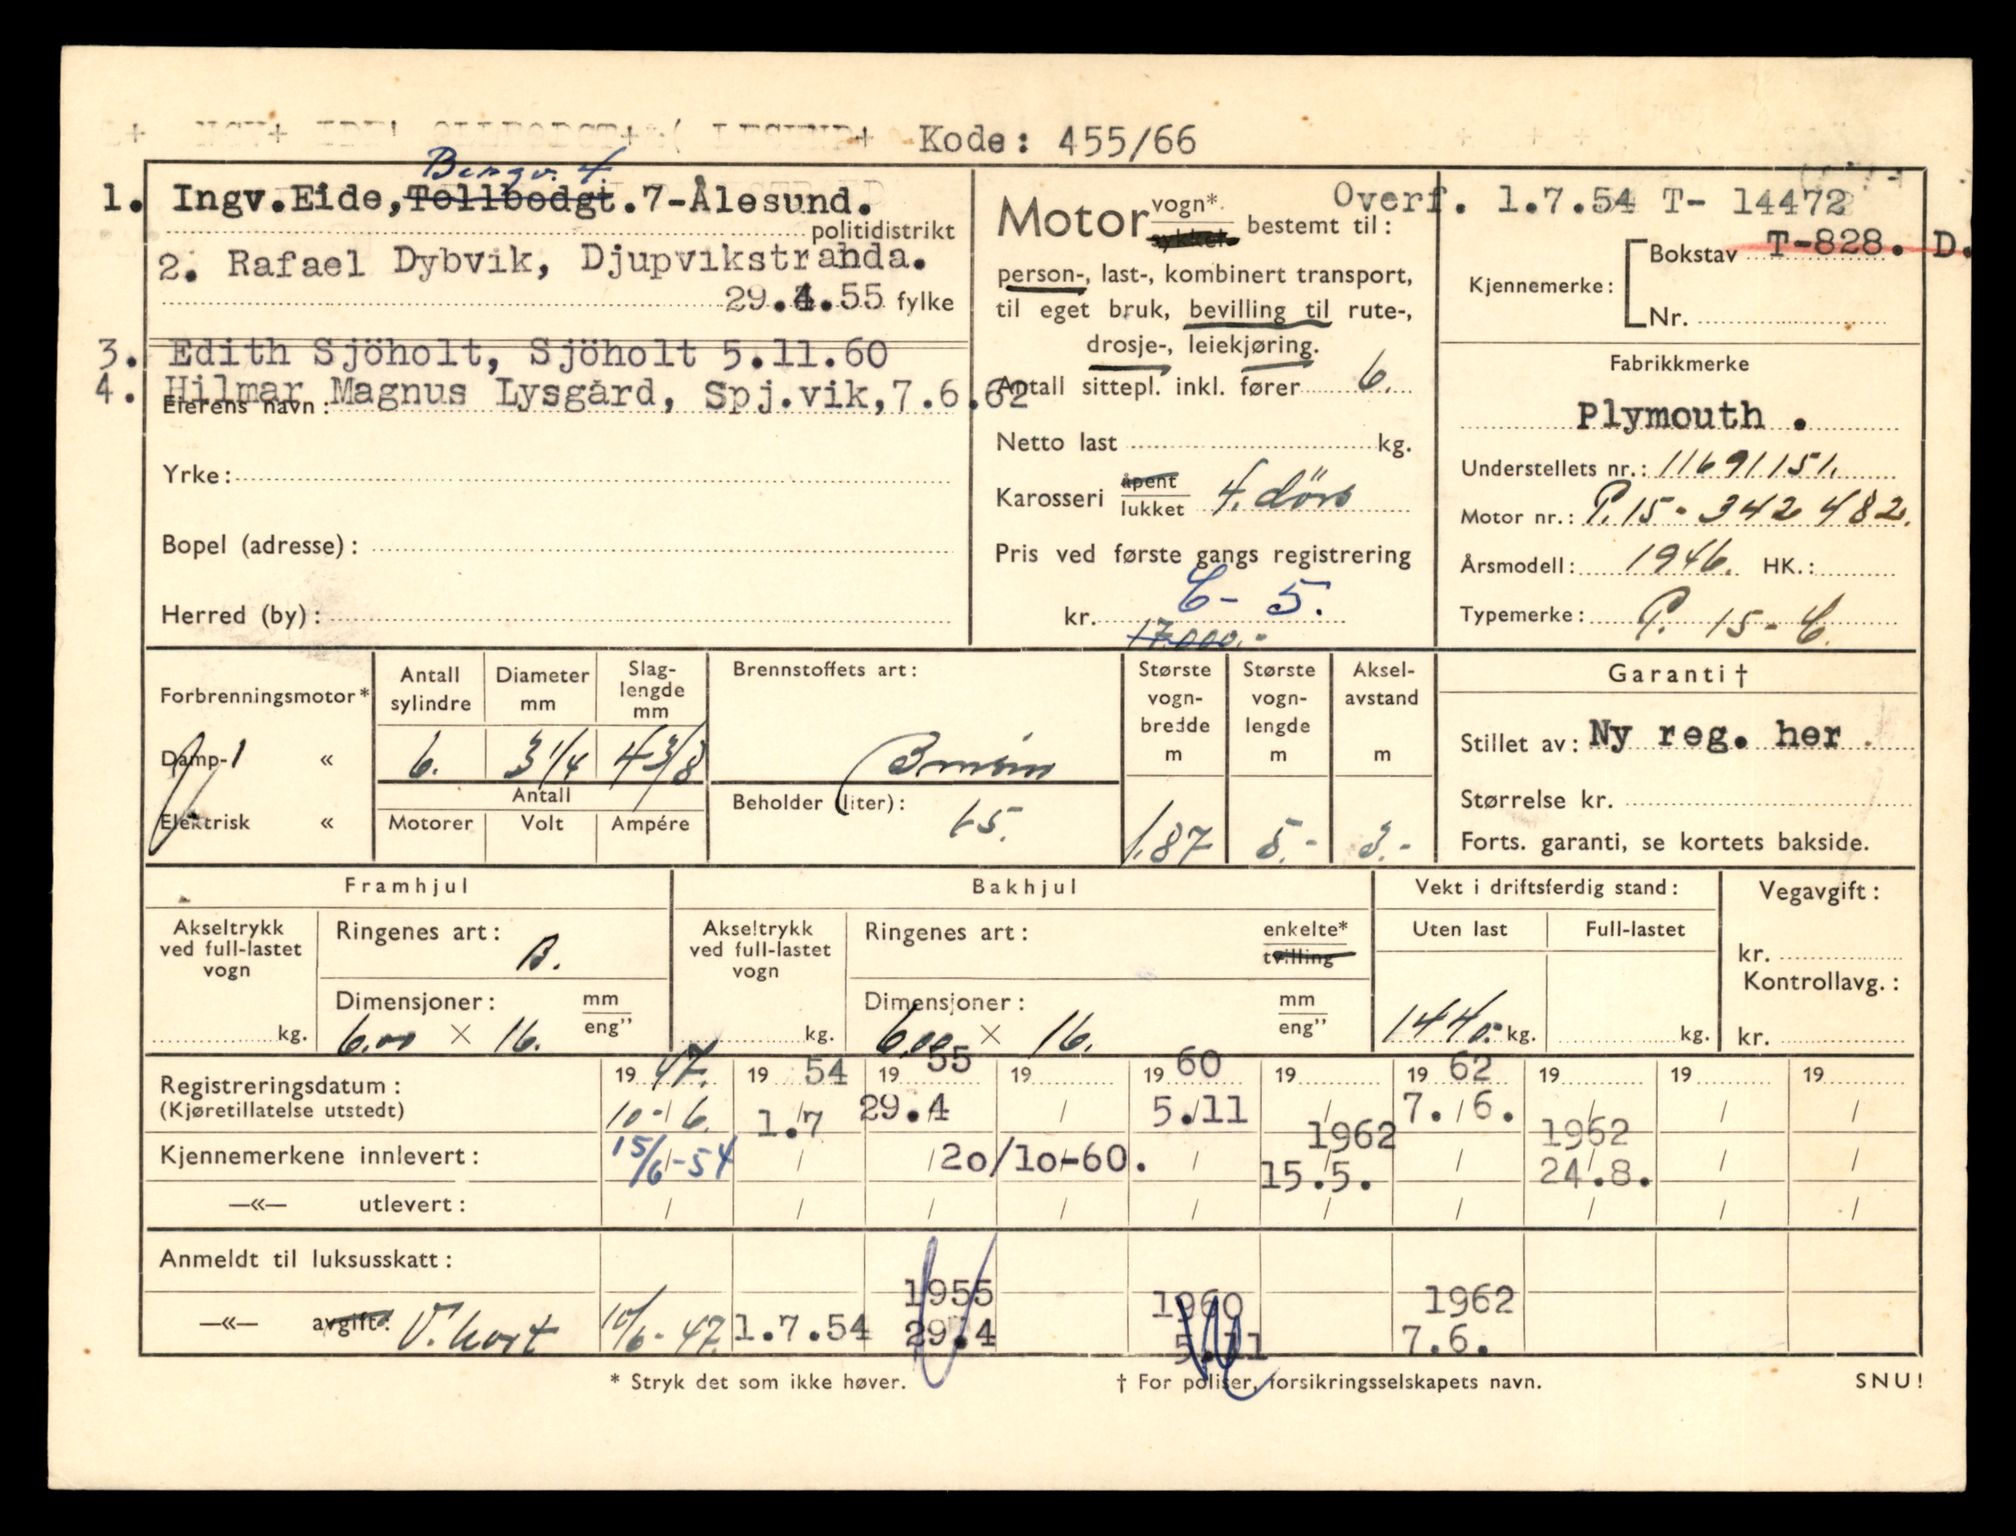 Kode: 455/66
Bergv. 4
1. Ingv.Eide, Tollbodgt.7-Ålesund.
politidistrikt
2. Rafael Dybvik, Djupvikstranda.
29.4.55 fylke
3. Edith Sjöholt, Sjöholt 5.11.60
4. Hilmar Magnus Lysgård, Spj.vik,7.6.62
Eierens navn:
Yrke:
Bopel (adresse):
Herred (by):
Motor vogn* sykkel* bestemt til:
person-, last-, kombinert transport,
til eget bruk, bevilling til rute-,
drosje-, leiekjøring.
Antall sittepl. inkl. fører 6.
Netto last kg.
Karosseri åpent lukket 4. dörs
Pris ved første gangs registrering
C- 5.
kr. 17.000.-
Overf. 1.7.54 T- 14472
Kjennemerke: Bokstav T-828. D.
Nr.
Fabrikkmerke
Plymouth .
Understellets nr.: 11691151.
Motor nr.: P.15-342 482.
Årsmodell: 1946. HK.:
Typemerke: P. 15-C.
Forbrenningsmotor*
Damp- «
Elektrisk «
Antall sylindre 6.
Diameter mm 3 1/4
Slag-lengde mm 4 3/8
Antall
Motorer Volt Ampére
Brennstoffets art: Bensin
Beholder (liter): 65.
Største vogn-bredde m 1.87
Største vogn-lengde m 5.-
Aksel-avstand m 3.-
Garanti †
Stillet av: Ny reg. her .
Størrelse kr.
Forts. garanti, se kortets bakside.
Framhjul
Akseltrykk ved full-lastet vogn kg.
Ringenes art: B.
Dimensjoner: mm eng”
6.00 × 16.
Bakhjul
Akseltrykk ved full-lastet vogn kg.
Ringenes art: enkelte* tvilling
Dimensjoner: mm eng”
6.00 × 16.
Vekt i driftsferdig stand:
Uten last Full-lastet
1440.- kg. kg.
Vegavgift:
kr.
Kontrollavg.:
kr.
Registreringsdatum: 19 47. 19 54 19 55 19 19 60 19 19 62 19 19 19
(Kjøretillatelse utstedt) 10-/6. 1./7 29./4 / 5./11 / 7./6. / / /
1962 1962
Kjennemerkene innlevert: 15/6-54 / / 20/10-60. / 15.5. / 24.8. / /
—«— utlevert: / / / / / / / / / /
Anmeldt til luksusskatt:
1955 1960 1962
—«— avgift: V. kort 10/6-47. 1.7.54 29.4 5.11 7.6.
* Stryk det som ikke høver.
† For poliser, forsikringsselskapets navn.
SNU!